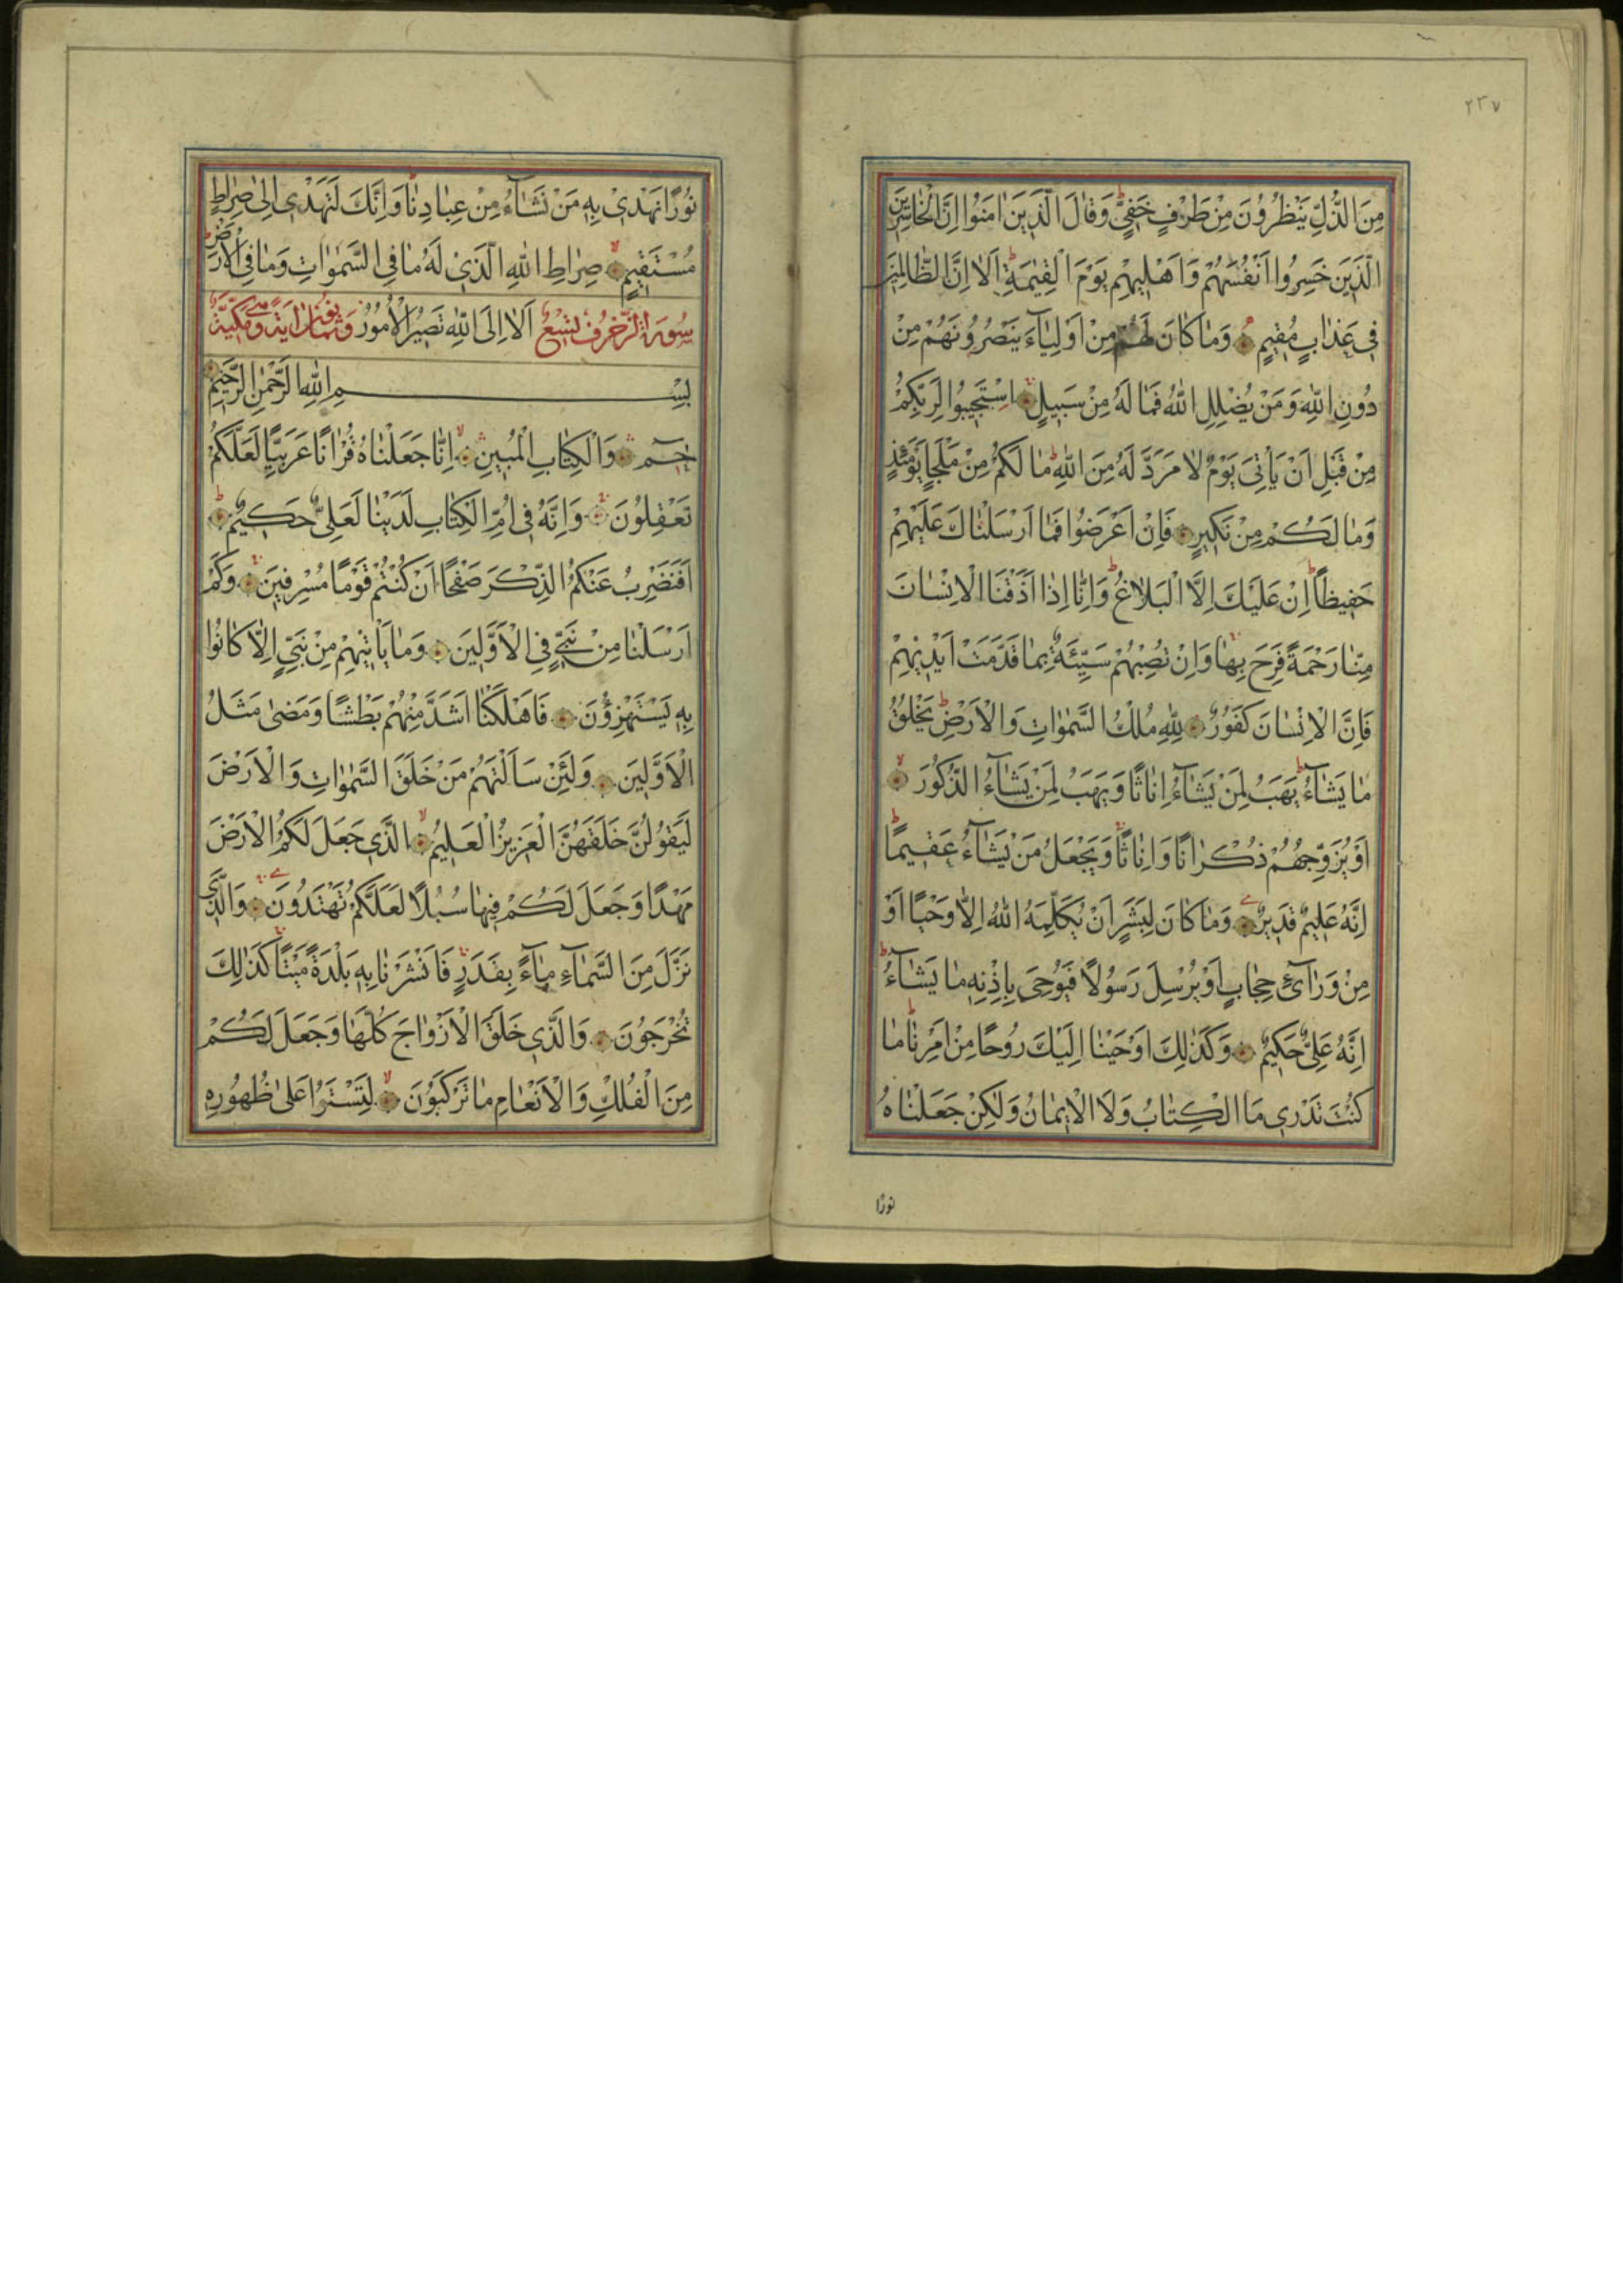 ٢٣٧
مِنَ الذُّلِّ يَنْظُرُونَ مِنْ طَرْفٍ خَفِيٍّ وَقَالَ الَّذِينَ اٰمَنُوا اِنَّ الْخَاسِرِينَ
الَّذِينَ خَسِرُوا اَنْفُسَهُمْ وَاَهْلِيهِمْ يَوْمَ الْقِيٰمَةِ اَلَا اِنَّ الظَّالِمِينَ
فِي عَذَابٍ مُقِيمٍ وَمَا كَانَ لَهُمْ مِنْ اَوْلِيَآءَ يَنْصُرُونَهُمْ مِنْ
دُونِ اللّٰهِ وَمَنْ يُضْلِلِ اللّٰهُ فَمَا لَهُ مِنْ سَبِيلٍ اِسْتَجِيبُوا لِرَبِّكُمْ
مِنْ قَبْلِ اَنْ يَأْتِيَ يَوْمٌ لَا مَرَدَّ لَهُ مِنَ اللّٰهِ مَا لَكُمْ مِنْ مَلْجَاٍ يَوْمَئِذٍ
وَمَا لَكُمْ مِنْ نَكِيرٍ فَاِنْ اَعْرَضُوا فَمَا اَرْسَلْنَاكَ عَلَيْهِمْ
حَفِيظًا اِنْ عَلَيْكَ اِلَّا الْبَلَاغُ وَاِنَّا اِذَا اَذَقْنَا الْاِنْسَانَ
مِنَّا رَحْمَةً فَرِحَ بِهَا وَاِنْ تُصِبْهُمْ سَيِّئَةٌ بِمَا قَدَّمَتْ اَيْدِيهِمْ
فَاِنَّ الْاِنْسَانَ كَفُورٌ لِلّٰهِ مُلْكُ السَّمٰوَاتِ وَالْاَرْضِ يَخْلُقُ
مَا يَشَآءُ يَهَبُ لِمَنْ يَشَآءُ اِنَاثًا وَيَهَبُ لِمَنْ يَشَآءُ الذُّكُورَ
اَوْ يُزَوِّجُهُمْ ذُكْرَانًا وَاِنَاثًا وَيَجْعَلُ مَنْ يَشَآءُ عَقِيمًا
اِنَّهُ عَلِيمٌ قَدِيرٌ وَمَا كَانَ لِبَشَرٍ اَنْ يُكَلِّمَهُ اللّٰهُ اِلَّا وَحْيًا اَوْ
مِنْ وَرَآئِ حِجَابٍ اَوْ يُرْسِلَ رَسُولًا فَيُوحِيَ بِاِذْنِهِ مَا يَشَآءُ
اِنَّهُ عَلِيٌّ حَكِيمٌ وَكَذٰلِكَ اَوْحَيْنَا اِلَيْكَ رُوحًا مِنْ اَمْرِنَا مَا
كُنْتَ تَدْرِي مَا الْكِتَابُ وَلَا الْاِيمَانُ وَلٰكِنْ جَعَلْنَاهُ
نورًا
نُورًا نَهْدِي بِهِ مَنْ نَشَآءُ مِنْ عِبَادِنَا وَاِنَّكَ لَتَهْدِي اِلٰى صِرَاطٍ
مُسْتَقِيمٍ صِرَاطِ اللّٰهِ الَّذِي لَهُ مَا فِي السَّمٰوَاتِ وَمَا فِي الْاَرْضِ
سُورَةُ الزُّخْرُفِ تِسْعٌ اَلَا اِلَى اللّٰهِ تَصِيرُ الْاُمُورُ وَثَمَانُونَ اٰيَةً وَهِيَ مَكِّيَّةٌ
بِسْمِ اللّٰهِ الرَّحْمٰنِ الرَّحِيمِ
حٰمٓ وَالْكِتَابِ الْمُبِينِ اِنَّا جَعَلْنَاهُ قُرْاٰنًا عَرَبِيًّا لَعَلَّكُمْ
تَعْقِلُونَ وَاِنَّهُ فِي اُمِّ الْكِتَابِ لَدَيْنَا لَعَلِيٌّ حَكِيمٌ
اَفَنَضْرِبُ عَنْكُمُ الذِّكْرَ صَفْحًا اَنْ كُنْتُمْ قَوْمًا مُسْرِفِينَ وَكَمْ
اَرْسَلْنَا مِنْ نَبِيٍّ فِي الْاَوَّلِينَ وَمَا يَأْتِيهِمْ مِنْ نَبِيٍّ اِلَّا كَانُوا
بِهِ يَسْتَهْزِؤُنَ فَاَهْلَكْنَا اَشَدَّ مِنْهُمْ بَطْشًا وَمَضٰى مَثَلُ
الْاَوَّلِينَ وَلَئِنْ سَاَلْتَهُمْ مَنْ خَلَقَ السَّمٰوَاتِ وَالْاَرْضَ
لَيَقُولُنَّ خَلَقَهُنَّ الْعَزِيزُ الْعَلِيمُ الَّذِي جَعَلَ لَكُمُ الْاَرْضَ
مَهْدًا وَجَعَلَ لَكُمْ فِيهَا سُبُلًا لَعَلَّكُمْ تَهْتَدُونَ وَالَّذِي
نَزَّلَ مِنَ السَّمَآءِ مَآءً بِقَدَرٍ فَاَنْشَرْنَا بِهِ بَلْدَةً مَيْتًا كَذٰلِكَ
تُخْرَجُونَ وَالَّذِي خَلَقَ الْاَزْوَاجَ كُلَّهَا وَجَعَلَ لَكُمْ
مِنَ الْفُلْكِ وَالْاَنْعَامِ مَا تَرْكَبُونَ لِتَسْتَوُا عَلٰى ظُهُورِهِ